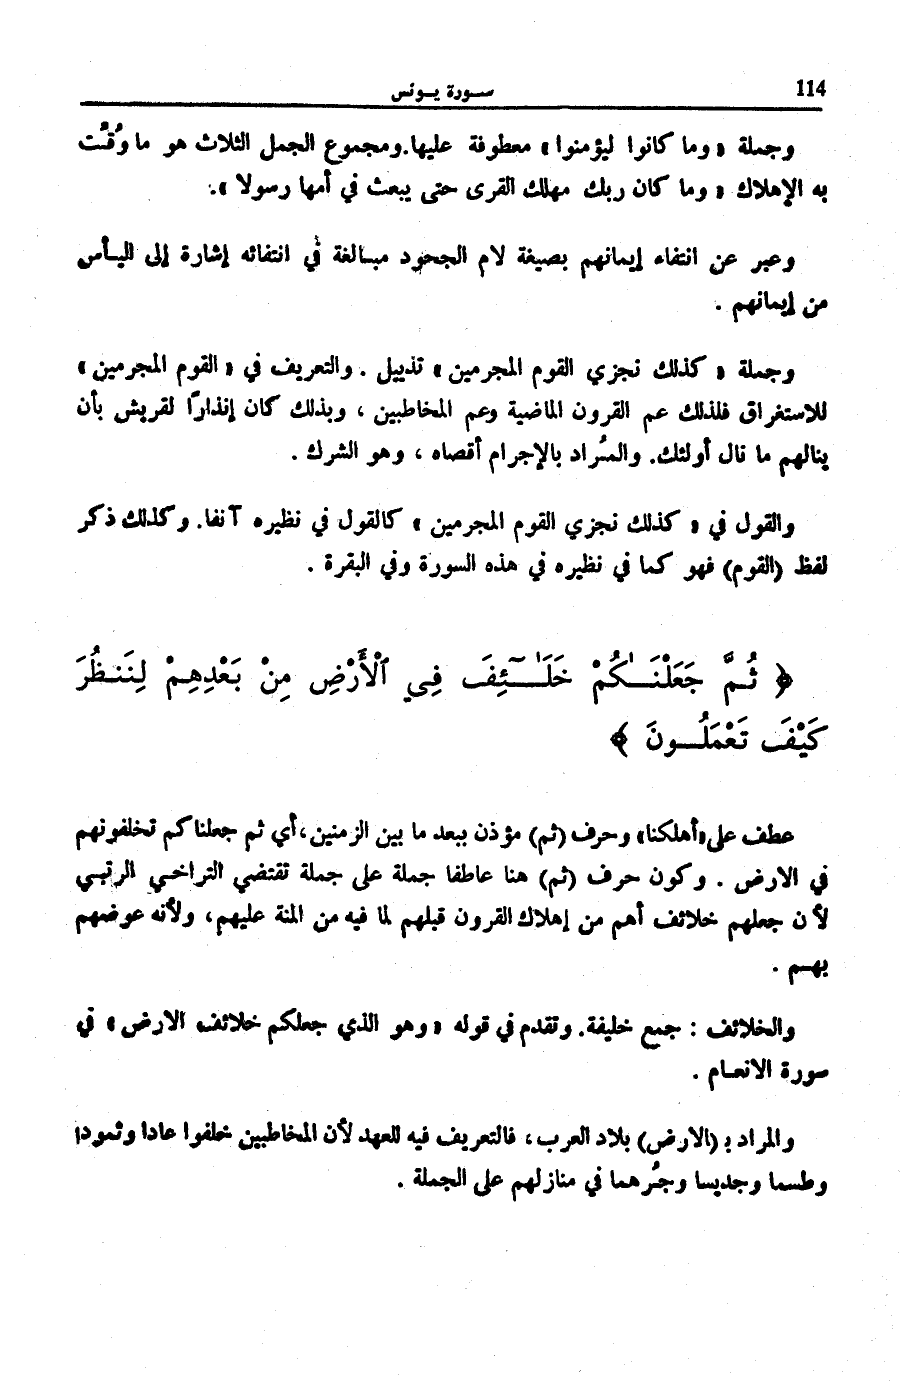 114
سورة يونس
وجملة « وما كانوا ليؤمنوا » معطوفة عليها. ومجموع الجمل الثلاث هو ما وُقّت
به الإهلاك « وما كان ربك مهلك القرى حتى يبعث في أمها رسولا ».
وعبر عن انتفاء إيمانهم بصيغة لام الجحود مبالغة في انتفائه إشارة إلى اليأس
من إيمانهم .
وجملة « كذلك نجزي القوم المجرمين » تذييل . والتعريف في « القوم المجرمين »
للاستغراق فلذلك عم القرون الماضية وعم المخاطبين ، وبذلك كان إنذارًا لقريش بأن
ينالهم ما نال أولئك. والمُراد بالإجرام أقصاه ، وهو الشرك .
والقول في « كذلك نجزي القوم المجرمين » كالقول في نظيره آنفا. وكذلك ذكر
لفظ (القوم) فهو كما في نظيره في هذه السورة وفي البقرة .
﴿ ثُمَّ جَعَلْنَـٰكُمْ خَلَـٰٓئِفَ فِي ٱلْأَرْضِ مِنْ بَعْدِهِمْ لِنَنظُرَ
كَيْفَ تَعْمَلُونَ ﴾
عطف على «أهلكنا» وحرف (ثم) مؤذن ببعد ما بين الزمنين، أي ثم جعلناكم تخلفونهم
في الارض . وكون حرف (ثم) هنا عاطفا جملة على جملة تقتضي التراخي الرتبي
لأن جعلهم خلائف أهم من إهلاك القرون قبلهم لما فيه من المنة عليهم، ولأنه عوضهم
بهم .
والخلائف : جمع خليفة. وتقدم في قوله « وهو الذي جعلكم خلائف الارض » في
سورة الانعام .
والمراد بـ (الارض) بلاد العرب، فالتعريف فيه للعهد لأن المخاطبين خلفوا عادا وثمودا
وطسما وجديسا وجُرهما في منازلهم على الجملة .